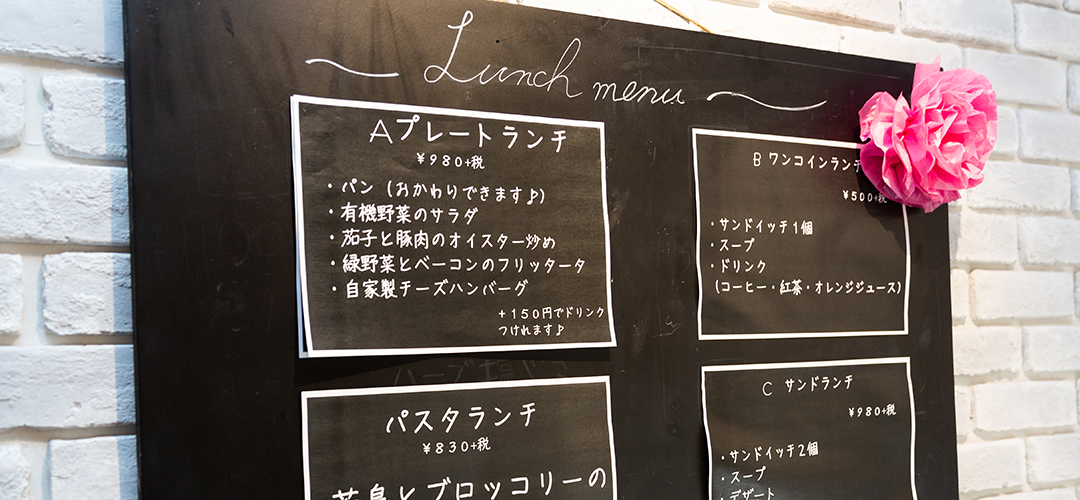 Lunch menu
Aプレートランチ
¥980+税
・パン (おかわりできます♪)
・有機野菜のサラダ
・茄子と豚肉のオイスター炒め
・緑野菜とベーコンのフリッタータ
・自家製チーズハンバーグ
+150円でドリンク
つけれます♪
パスタランチ
¥830+税
とブロッコリーの
B ワンコインランチ
¥500+税
・サンドイッチ1個
・スープ
・ドリンク
(コーヒー・紅茶・オレンジジュース)
C サンドランチ
¥980+税
・サンドイッチ2個
・スープ
・デザート